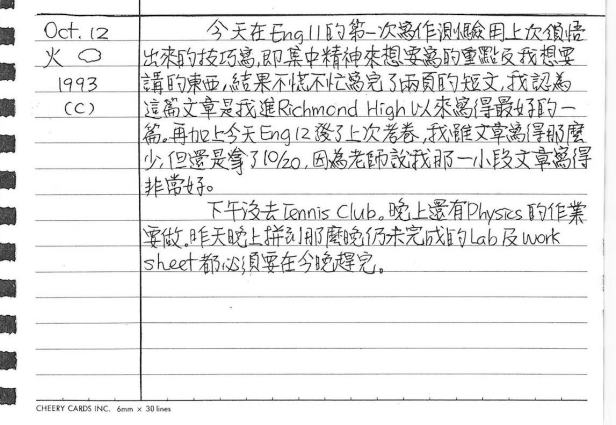 Oct. 12
火
1993
(C)
今天在Eng 11的第一次寫作測驗用上次領悟
出來的技巧寫,即集中精神來想要寫的重點及我想要
講的東西,結果不慌不忙寫完了兩頁的短文,我認為
這篇文章是我進Richmond High以來寫得最好的一
篇。再加上今天Eng 12發了上次考卷,我雖文章寫得那麼
少,但還是拿了10/20,因為老師說我那一小段文章寫得
非常好。
下午沒去Tennis Club。晚上還有Physics的作業
要做。昨天晚上拼到那麼晚仍未完成的Lab及work
sheet都必須要在今晚趕完。
CHEERY CARDS INC. 6mm × 30 lines